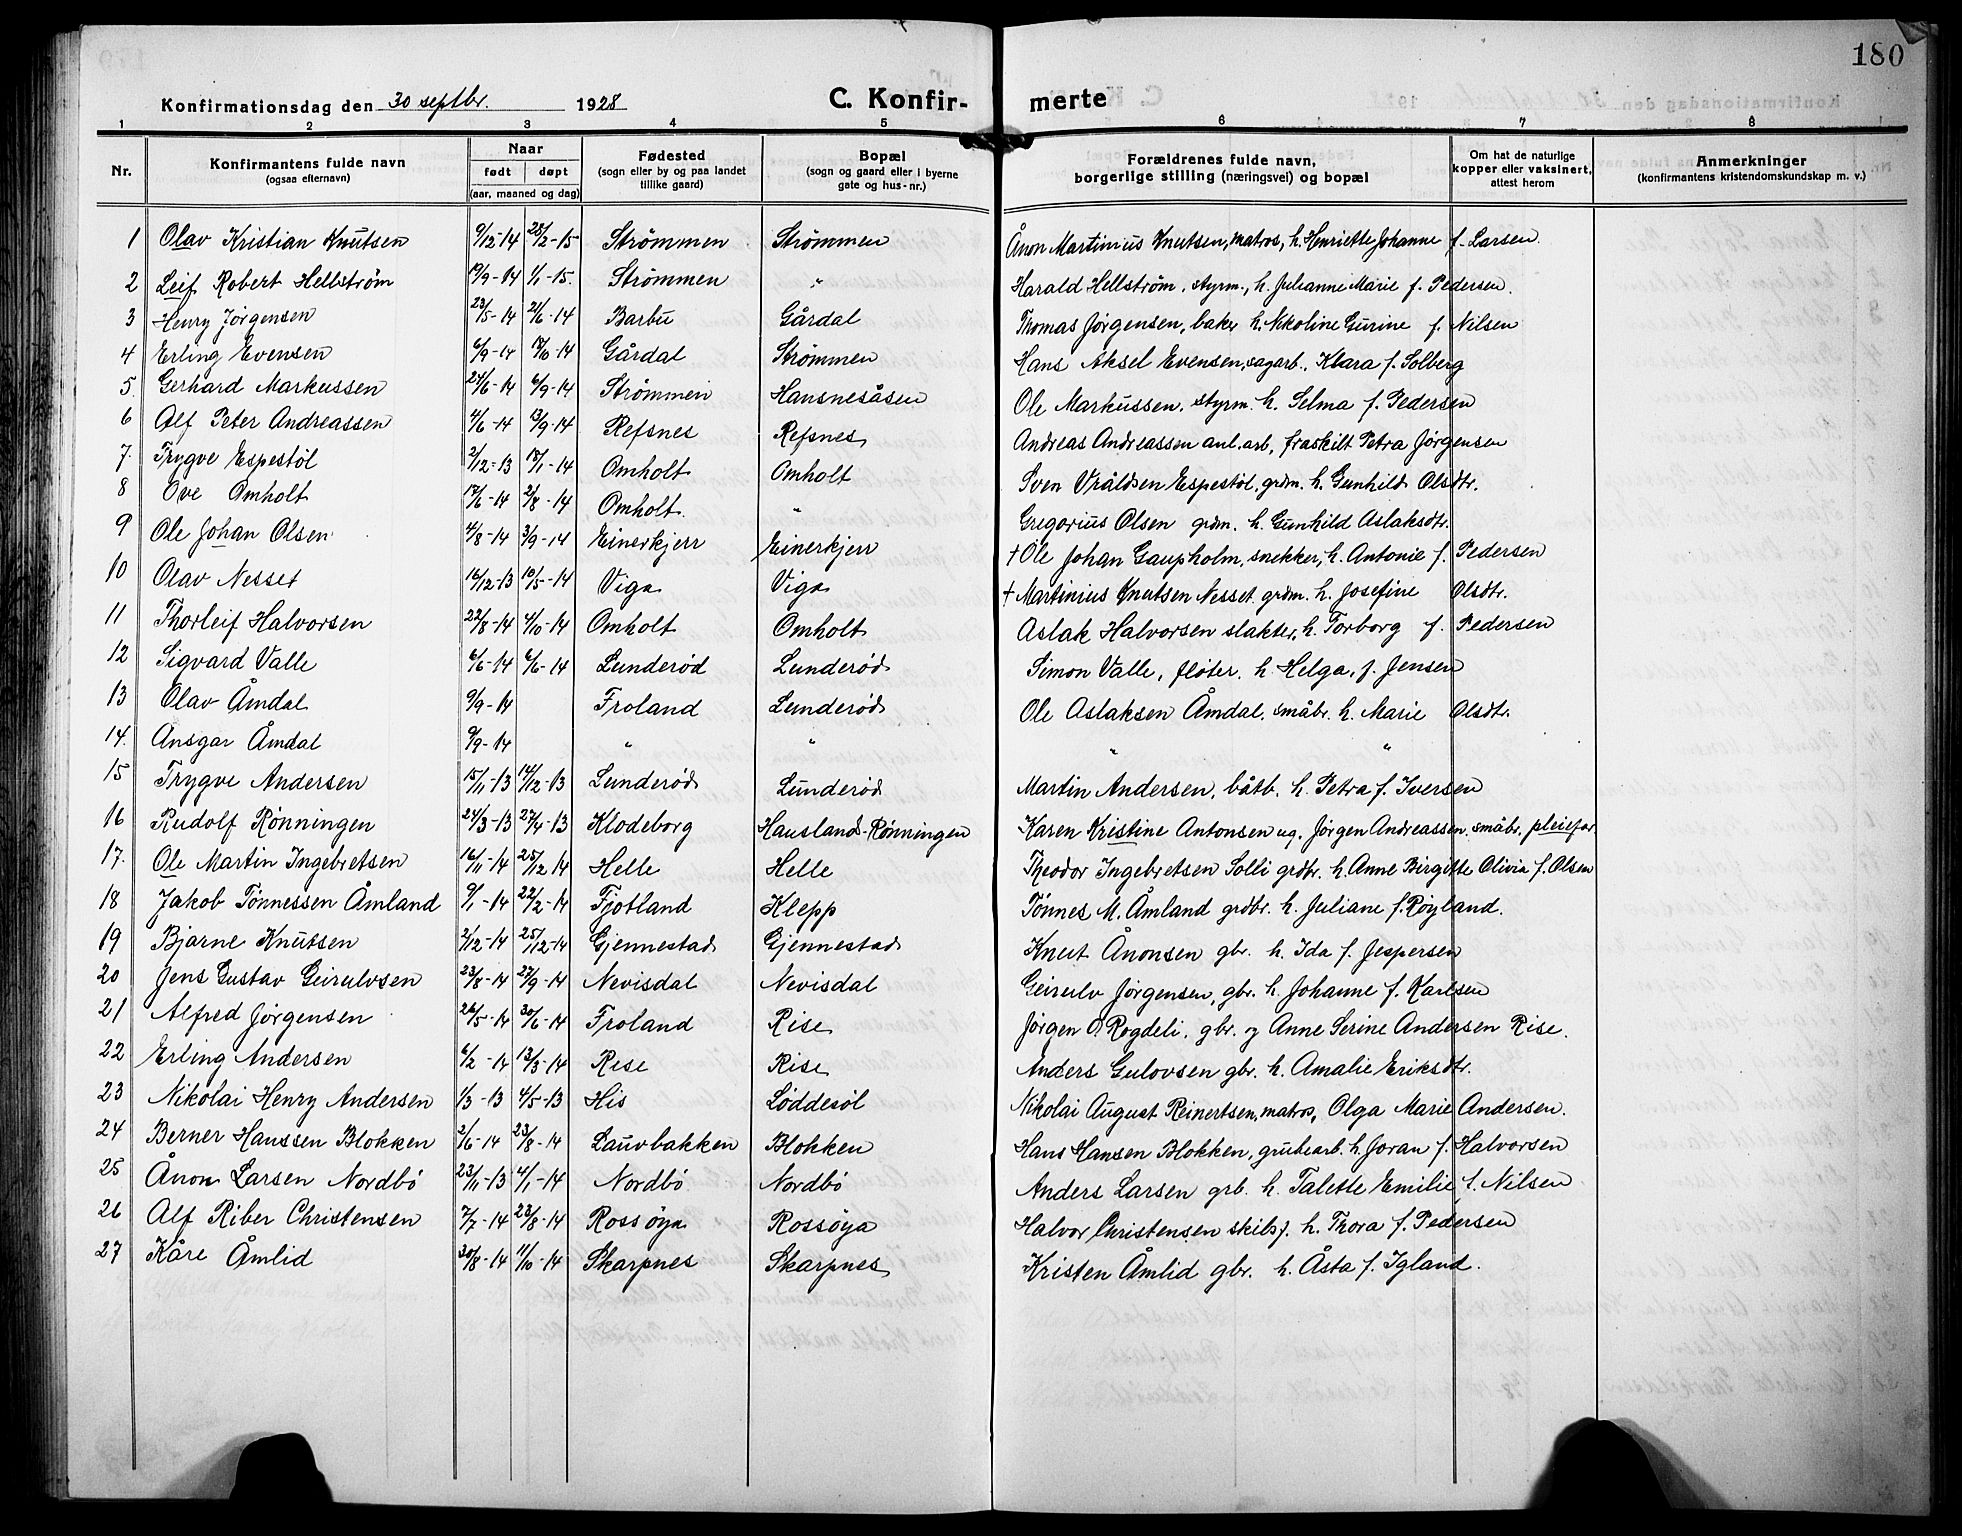 180
Konfirmationsdag den 30 septbr. 1928 C. Konfirmerte
1 2 3 4 5 6 7 8
Nr. Konfirmantens fulde navn (ogsaa efternavn) Naar født døpt (aar, maaned og dag) Fødested (sogn eller by og paa landet tillike gaard) Bopæl (sogn og gaard eller i byerne gate og hus-nr.) Forældrenes fulde navn, borgerlige stilling (næringsvei) og bopæl Om hat de naturlige kopper eller vaksinert, attest herom Anmerkninger (konfirmantens kristendomskundskap m. v.)
1 Olav Kristian Knutsen 9/12-14 28/2-15 Strömmen Strömmen Ånon Martinius Knutsen, matros, h. Henriette Johanne f. Larsen.
2 Leif Robert Hellström 19/9-14 1/1-15. Strömmen " Harald Hellström, styrm., h. Julianne Marie f. Pedersen.
3 Henry Jørgensen 23/5-14 21/6-14 Barbu Gårdal Thomas Jørgensen, baker h. Nikoline Gurine f. Nilsen
4 Erling Evensen 6/9-14 Gårdal Strömmen Hans Aksel Evensen, sagarb., Klara f. Solberg
5. Gerhard Markussen 24/6-14 6/9-14 Strömmen Hansnesåsen Ole Markussen, styrm. h. Selma f. Pedersen
6 Alf Peter Andreassen 4/6-14 13/9-14 Refsnes Refsnes Andreas Andreassen anl. arb, fraskilt Petra Jørgensen
7. Trygve Espestöl 2/12-13 18/1-14 Omholt Omholt Sven Vråldsen Espestöl, grdm. h. Gunhild Olsdtr.
8 Ove Omholt 17/6-14 2/8-14 Omholt. " Gregorius Olsen grdm. h. Gunhild Aslaksdtr.
9 Ole Johan Olsen 4/8-14 3/9-14 Einerkjerr Einerkjerr + Ole Johan Gaupholm, snekker, h. Antonie f. Pedersen
10 Olav Nesset 16/12-13 10/5-14 Viga Viga + Martinius Knutsen Nesset grdm. h. Josefine Olsdtr.
11 Thorleif Halvorsen 22/8-14 4/10-14 Omholt Omholt Aslak Halvorsen slakter, h. Torborg f. Pedersen
12 Sigvard Valle 6/6-14 6/6-14 Lunderød Lunderød Simon Valle, fløter. h. Helga, f. Jensen
13 Olav Åmdal 9/9-14 Froland Lunderød Ole Aslaksen Åmdal, småbr. h. Marie Olsdtr.
14. Ansgar Åmdal 9/9-14 " " " "
15 Trygve Andersen 15/11-13 14/12-13 Lunderød Lunderød Martin Andersen, båtb. h. Petra f. Iversen
16 Rudolf Rønningen 24/3-13 27/4-13 Klodeborg Hauslands-Rønningen Karen Kristine Antonsen ug. Jörgen Andreassen, småbr. pleiefor
17. Ole Martin Ingebretsen 16/11-14 25/12 14 Helle Helle Theodor Ingebretsen Solli grdbr. h. Anne Birgitte Olivia f. Olsen
18 Jakob Tönnessen Åmland 9/1-14 22/2-14 Fjotland Klepp Tönnes M. Åmland grdbr. h. Juliane f. Röyland.
19 Bjarne Knutsen 2/12-14 25/12-14 Gjennestad Gjennestad Knut Ånonsen gbr. h. Ida f. Jespersen
20 Jens Gustav Geirulvsen 23/8-14 27/9-14 Nevisdal Nevisdal Geirulv Jørgensen, gbr. h. Johanne f. Karlsen
21 Alfred Jörgensen 26/5-14 30/6-14 Froland Rise Jörgen O. Rogdeli, gbr. og Anne Serine Andersen Rise.
22 Erling Andersen 6/2-14 13/3-14 Rise Rise Anders Gulovsen gbr. h. Amalie Eriksdtr.
23 Nikolai Henry Andersen 1/3-13 4/5-13 His Løddesöl Nikolai August Reinertsen, matros, Olga Marie Andersen.
24 Berner Hanssen Blokken 2/6-14 23/8-14 Lauvbakken Blokken Hans Hansen Blokken, grubearb. h. Joran f. Halvorsen
25 Ånon Larsen Nordbö 23/11-13 4/1-14 Nordbö Nordbö Anders Larsen grb. h. Talette Emilie f. Nilsen
26 Alf Riber Christensen 7/7-14 23/8-14 Rossöya Rossöya Halvor Christensen skibsf. h. Thora f. Pedersen
27 Kåre Åmlid 30/8-14 11/10-14 Skarpnes Skarpnes Kristen Åmlid gbr. h. Åsta f. Igland.